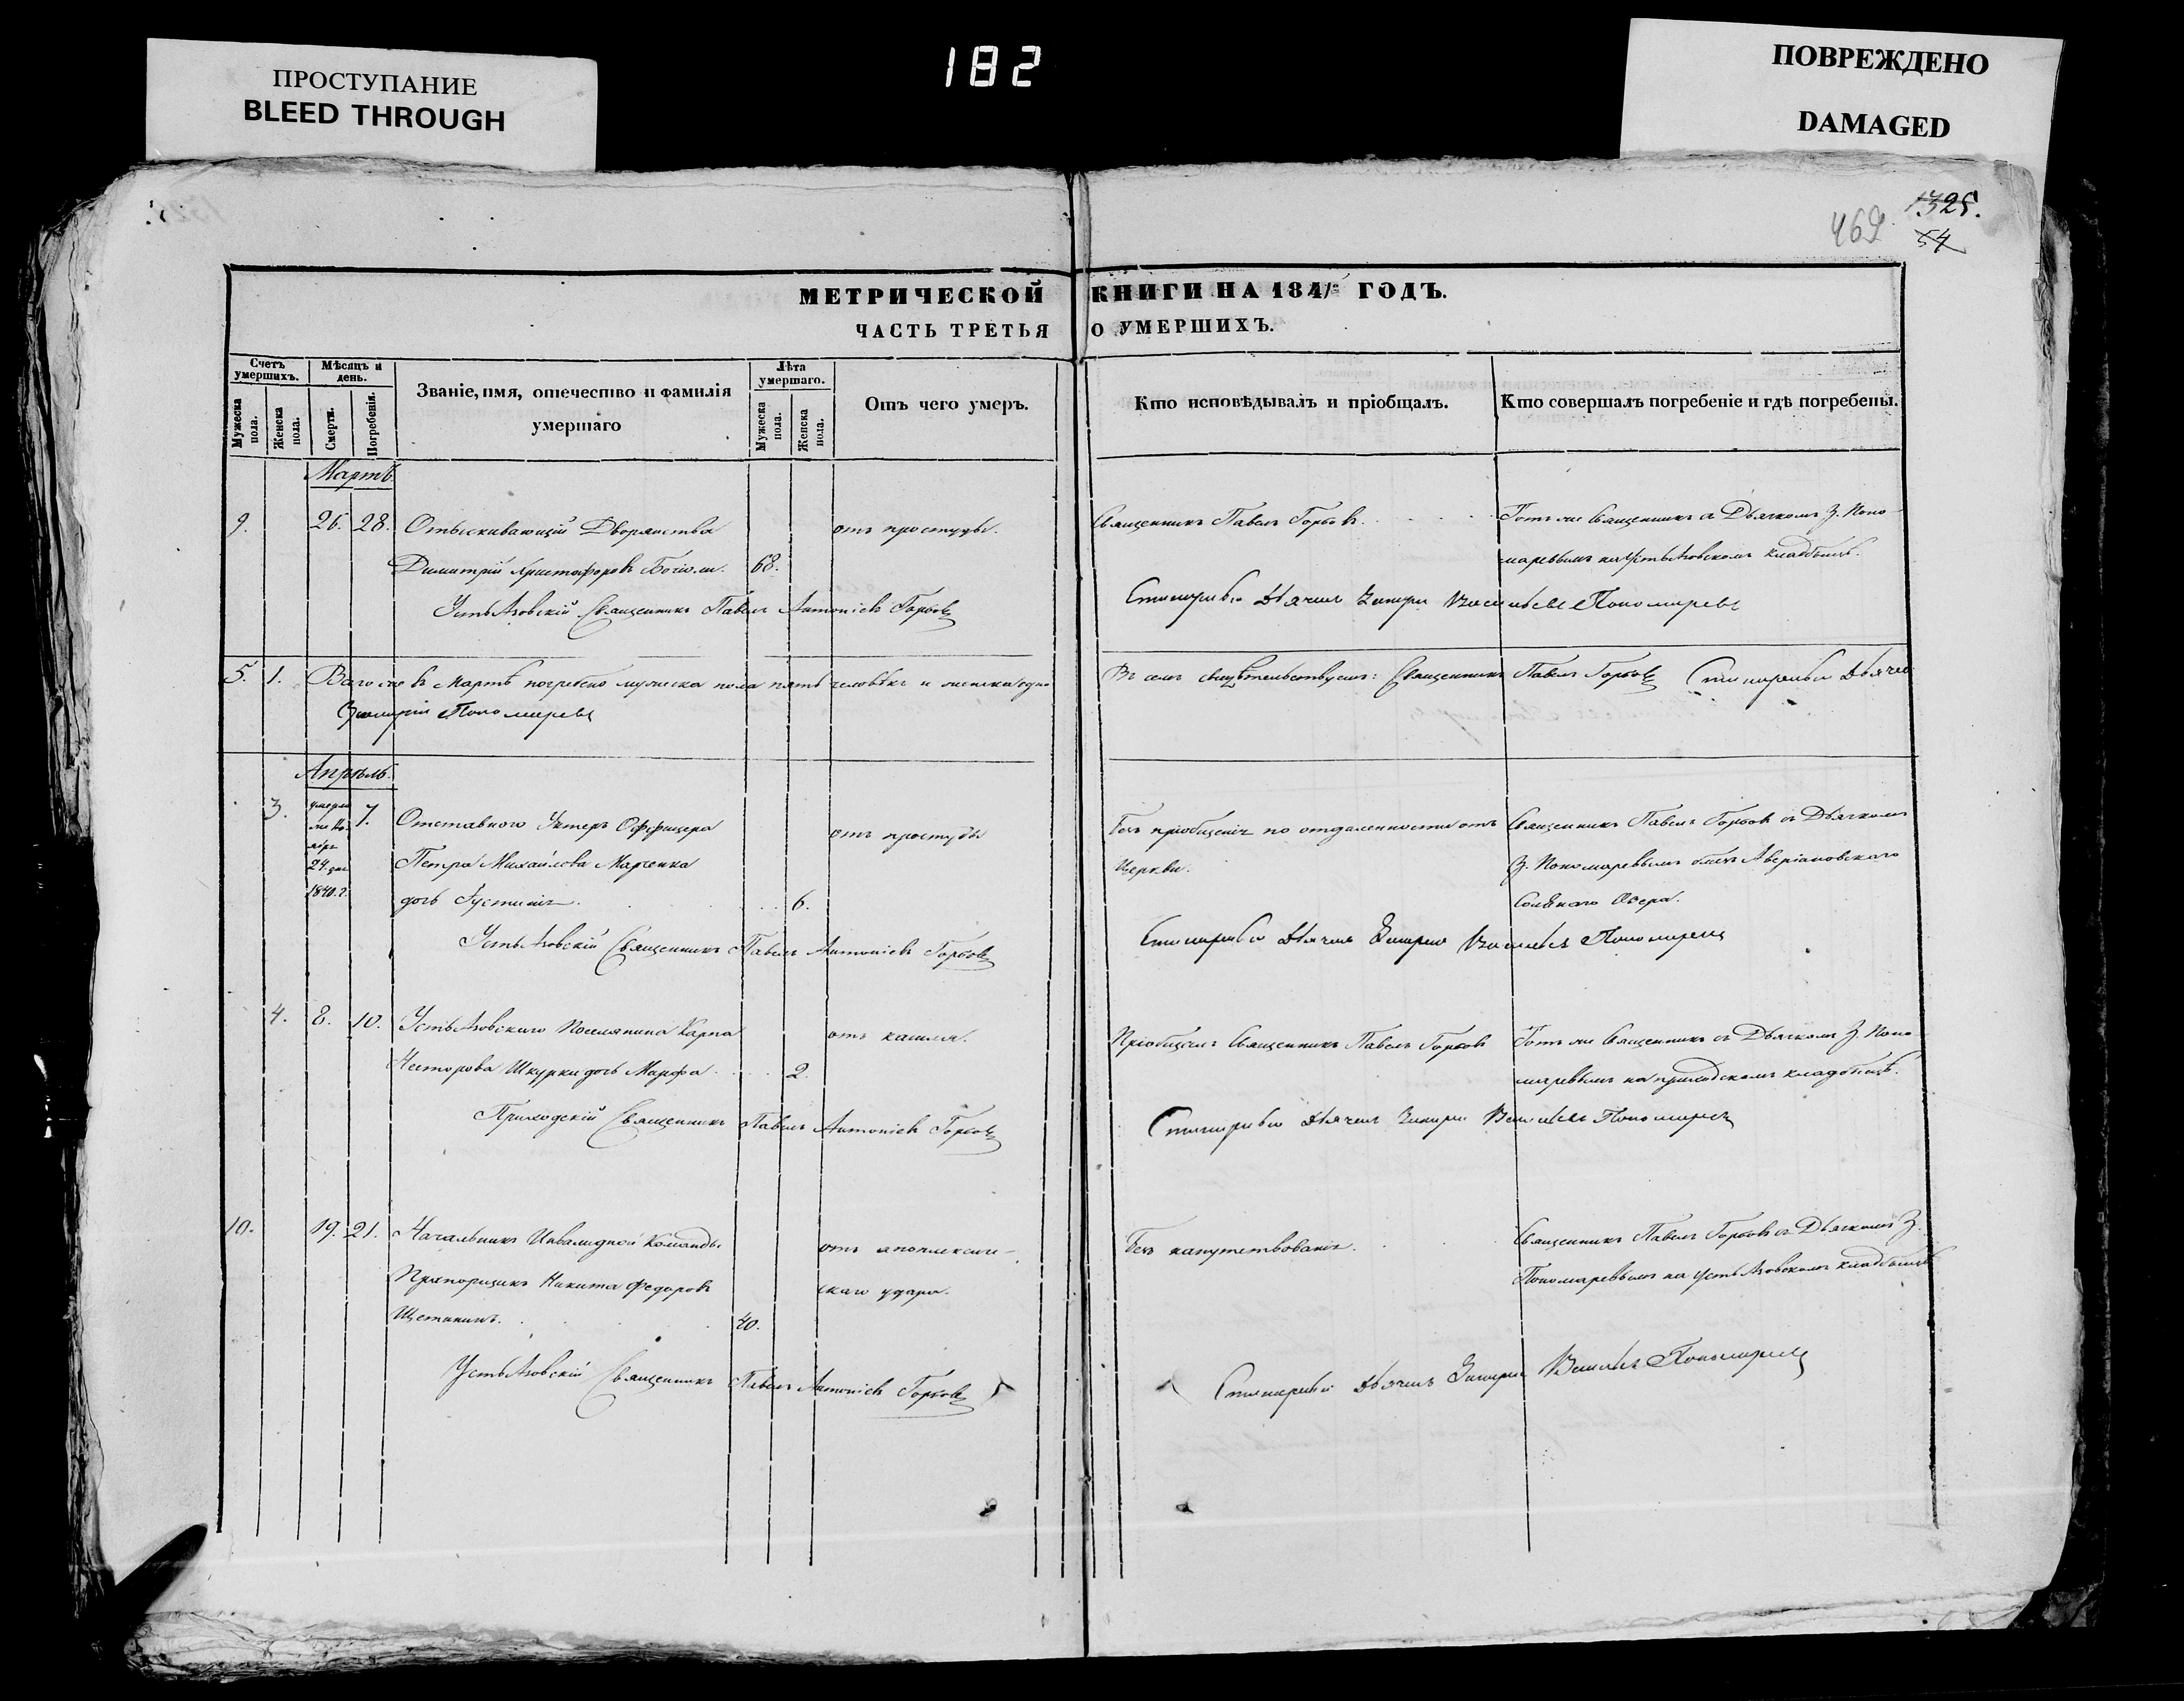 ПРОСТУПАНИЕ
BLEED THROUGH
182
ПОВРЕЖДЕНО
DAMAGED
1325.
469
54
МЕТРИЧЕСКОЙ КНИГИ НА 1841 ГОДЪ.
ЧАСТЬ ТРЕТЬЯ О УМЕРШИХЪ.
Счетъ умершихъ.
Мужеска пола.
Женска пола.
Мѣсяцъ и день.
Смерти.
Погребенія.
Званіе, имя, отечество и фамилія
умершаго
Лѣта умершаго.
Мужеска пола.
Женска пола.
Отъ чего умеръ.
Кто исповѣдывалъ и пріобщалъ.
Кто совершалъ погребеніе и гдѣ погребены.
Мартъ.
9. 26. 28. Отыскивающій Дворянства отъ простуды. Священникъ Павелъ Горбовъ. Тотъ же Священникъ съ Дьячкомъ З. Поно
Димитрій Христофоровъ 68. маревымъ на кладбищѣ.
Священникъ Павелъ Антоніевъ Горбовъ Дьячекъ Пономаревъ
5. 1. Всего же въ Мартѣ погребено мужеска пола пять человѣкъ и женска одно Въ семъ свидѣтельствуемъ: Священникъ Павелъ Горбовъ
Пономаревъ
Апрѣль.
3. умерла 7. Отставного Унтеръ Оффицера отъ простуды Безъ пріобщенія по отдаленности отъ Священникъ Павелъ Горбовъ съ Дьячкомъ
24. дня Петра Михайлова Марченка Церкви. З. Пономаревымъ близъ Аверіановскаго
1840. г. дочь Іустинія. 6. Солянаго Озера.
Священникъ Павелъ Антоніевъ Горбовъ Дьячекъ Пономаревъ
4. 8. 10. Поселянина Карпа отъ кашля. Пріобщалъ Священникъ Павелъ Горбовъ Тотъ же Священникъ съ Дьячкомъ З. Поно
Нестерова Шкурки дочь Марфа 2. маревымъ на приходскомъ кладбищѣ.
Приходскій Священникъ Павелъ Антоніевъ Горбовъ Дьячекъ Пономаревъ
10. 19. 21. Начальникъ Инвалидной Команды отъ апоплексиче- Безъ напутствованія. Священникъ Павелъ Горбовъ съ Дьячкомъ З.
Прапорщикъ Никита Федоровъ скаго удара. Пономаревымъ на кладбищѣ
Щетининъ. 40.
Священникъ Павелъ Антоніевъ Горбовъ Дьячекъ Пономаревъ